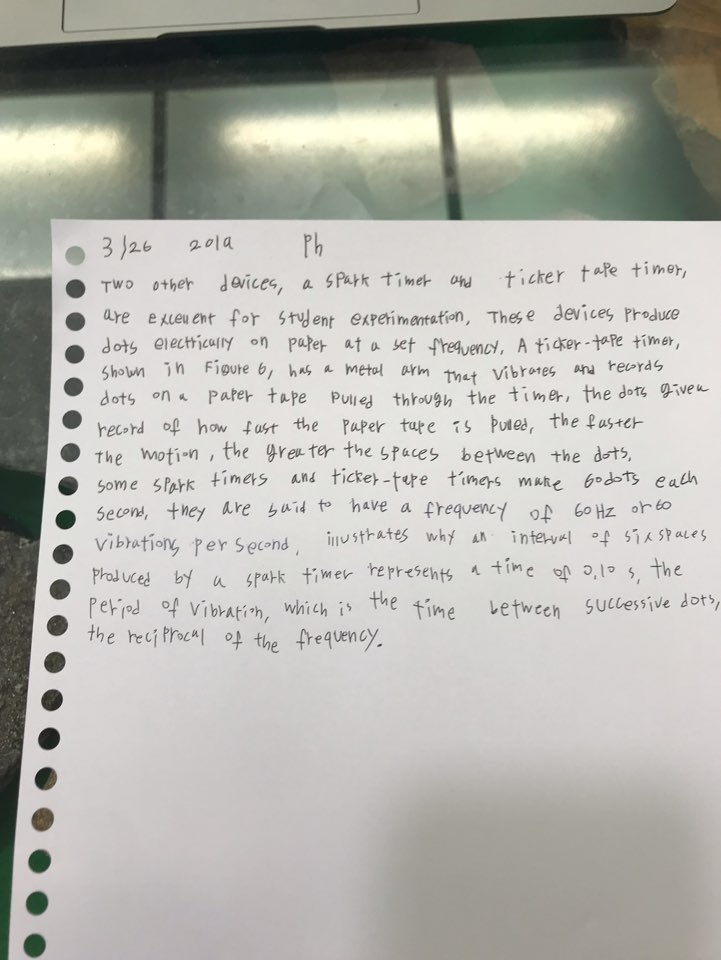 3/26 2019 Ph
Two other devices, a spark timer and ticker tape timer,
are excellent for student experimentation, These devices produce
dots electrically on paper at a set frequency, A ticker-tape timer,
shown in Figure 6, has a metal arm that vibrates and records
dots on a paper tape pulled through the timer, the dots given
record of how fast the paper tape is pulled, the faster
the motion, the greater the spaces between the dots,
some spark timers and ticker-tape timers make 60 dots each
second, they are said to have a frequency of 60 Hz or 60
vibrations per second, illustrates why an interval of six spaces
produced by a spark timer represents a time of 0,10 s, the
period of vibration, which is the time between successive dots,
the reciprocal of the frequency.